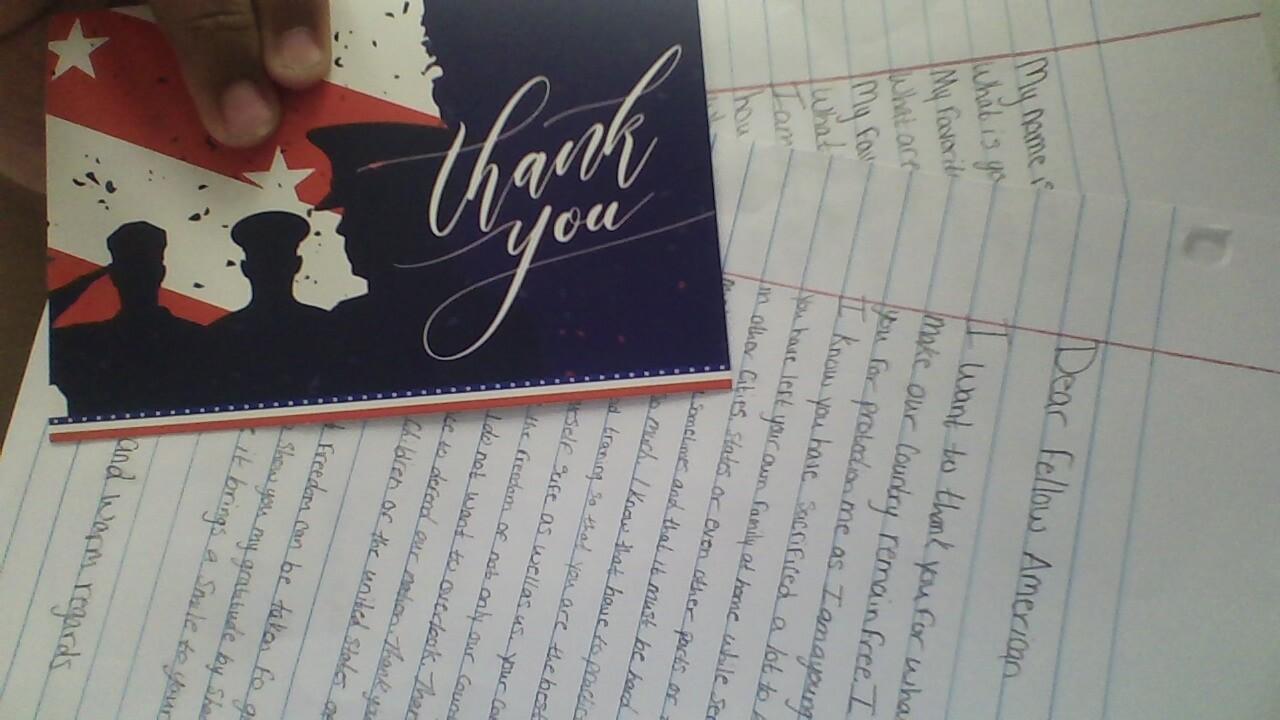 thank
you
My name is
What is yo
My favorit
What are
My fav
What
I am
how
Dear fellow American
I want to thank you for wha
make our country remain free. I
you for protection me as I am young
I know you have sacrificed a lot to
you have left your own family at home while ser
in other cities, states or even other parts or
sometime and that it must be hard
so much. I know that have to practic
training so that you are the best
as well as us. your
the freedom or not only our
I do not want to overlook. Ther
to defend our nation. Thank you
children or the united states
Freedom can be taken fo
show you my gratitude by
it brings a smile to your
and warm regards